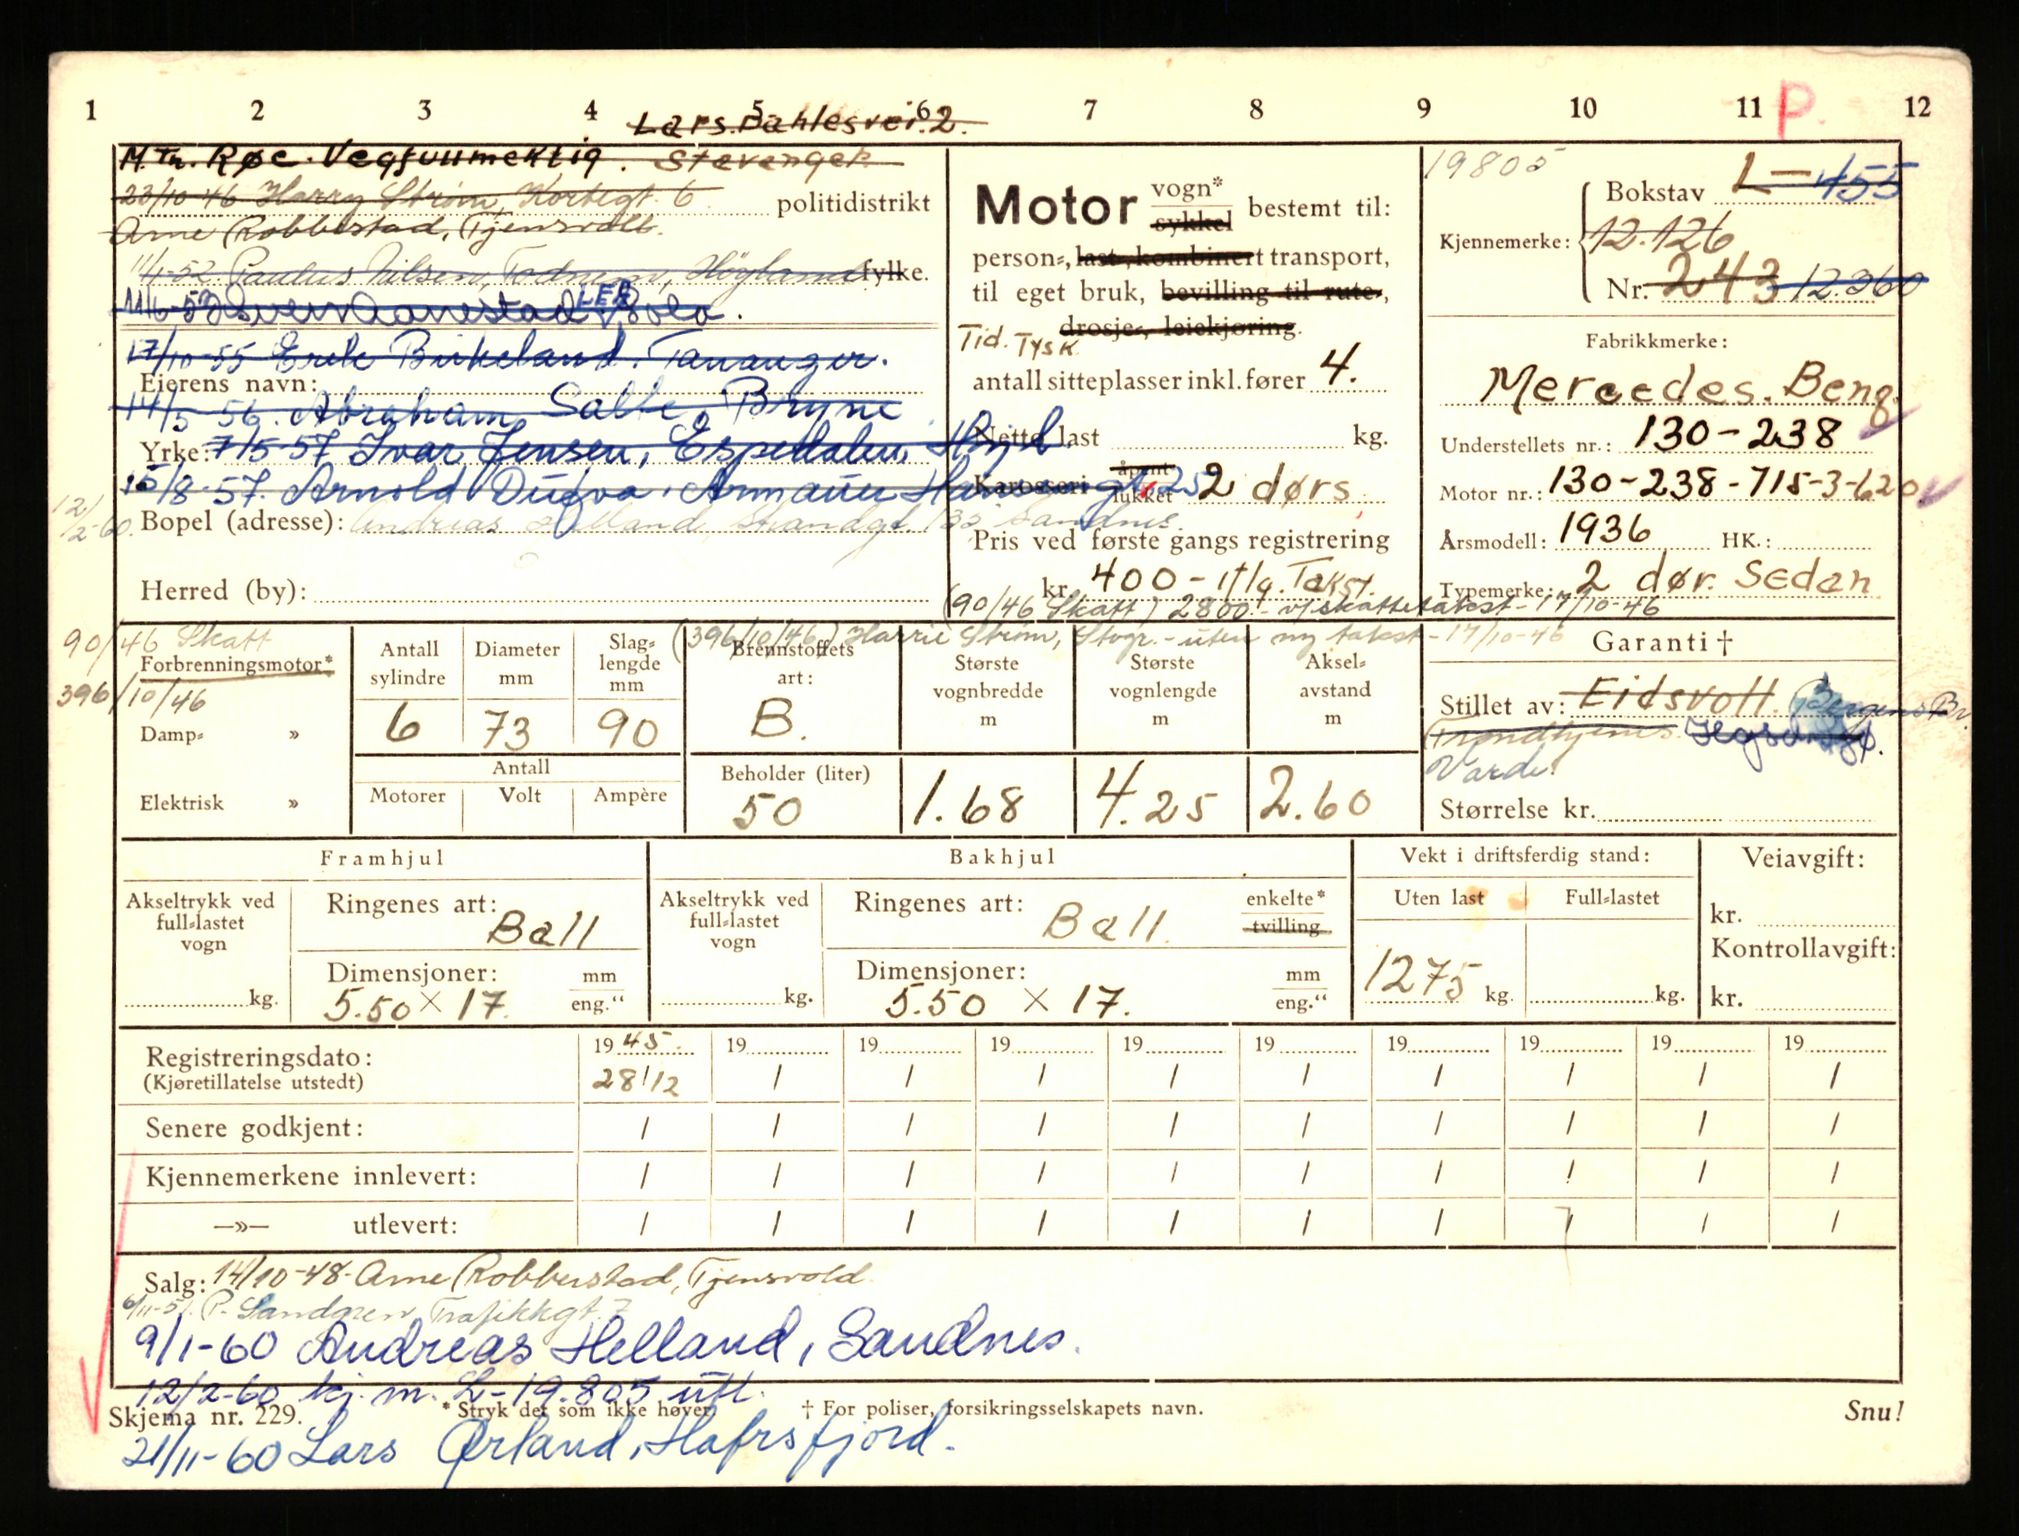 1 2 3 4 5 6 7 8 9 10 11 12
P.
Lars Dahlesvei. 2.
M. Tn. Røe. Vegfullmektig. Stavanger.
23/10-46 Harry Strøm, Kortegt. 6 politidistrikt
Arne Robberstad, Tjensvoll.
11/1-52. Paulus Nilsen, Høyland fylke.
11/6-52 Svein Aanestad Sola.
17/10-55 Erik Birkeland. Tananger.
Eierens navn:
14/5-56. Abraham Salte, Bryne
Yrke: 7/5-57 Ivar Jensen, Espedalen, Høgl.
15/8-57. Arnold Dugva. Armauer Hansensgt. 25
12/2-60. Bopel (adresse): Andreas Helland, Strandgt. 135 Sandnes.
Herred (by):
Motor vogn*
sykkel bestemt til:
person-, last-, kombinert transport,
til eget bruk, bevilling til rute-,
drosje-, leiekjøring.
Tid. Tysk
antall sitteplasser inkl. fører 4.
Netto last kg.
Karosseri åpent
lukket 2 dørs
Pris ved første gangs registrering
kr. 400 - 17/9. Takst.
(90/46 Skatt) 2800.- v/skattetakst - 17/10-46
(396/10/46) Harrie Strøm, Stvgr. - uten ny takst - 17/10-46
19805
Bokstav L-455
Kjennemerke: 12.126
Nr. 243 12.360
Fabrikkmerke:
Mercedes. Benz
Understellets nr.: 130-238
Motor nr.: 130-238-715-3-620
Årsmodell: 1936 HK.:
Typemerke: 2 dør. Sedan
90/46 Skatt
Forbrenningsmotor*
396/10/46
Damp- »
Elektrisk »
Antall sylindre Diameter mm Slag-lengde mm
6 73 90
Antall
Motorer Volt Ampère
Brennstoffets art:
B.
Beholder (liter)
50
Største vognbredde m
1.68
Største vognlengde m
4.25
Aksel-avstand m
2.60
Garanti †
Stillet av: Eidsvoll. Bergens Br.
Trondhjems
Varde
Størrelse kr.
Framhjul
Akseltrykk ved full-lastet vogn
kg.
Ringenes art:
Ball
Dimensjoner: mm
5.50 × 17. eng."
Bakhjul
Akseltrykk ved full-lastet vogn
kg.
Ringenes art: enkelte*
Ball tvilling
Dimensjoner: mm
5.50 × 17. eng."
Vekt i driftsferdig stand:
Uten last Full-lastet
1275 kg. kg.
Veiavgift:
kr.
Kontrollavgift:
kr.
Registreringsdato: 19 45. 19 19 19 19 19 19 19 19 19
(Kjøretillatelse utstedt) 28/12 / / / / / / / / /
Senere godkjent: / / / / / / / / / /
Kjennemerkene innlevert: / / / / / / / / / /
—»— utlevert: / / / / / / / / / /
Salg: 14/10-48- Arne Robberstad, Tjensvold
6/11-51. P. Sandgren, Trafikkgt. 7
9/1-60 Andreas Helland, Sandnes.
12/2-60 kj. m. L-19.805 utl.
Skjema nr. 229. * Stryk det som ikke høver. † For poliser, forsikringsselskapets navn. Snu!
21/11-60 Lars Ørland, Hafrsfjord.